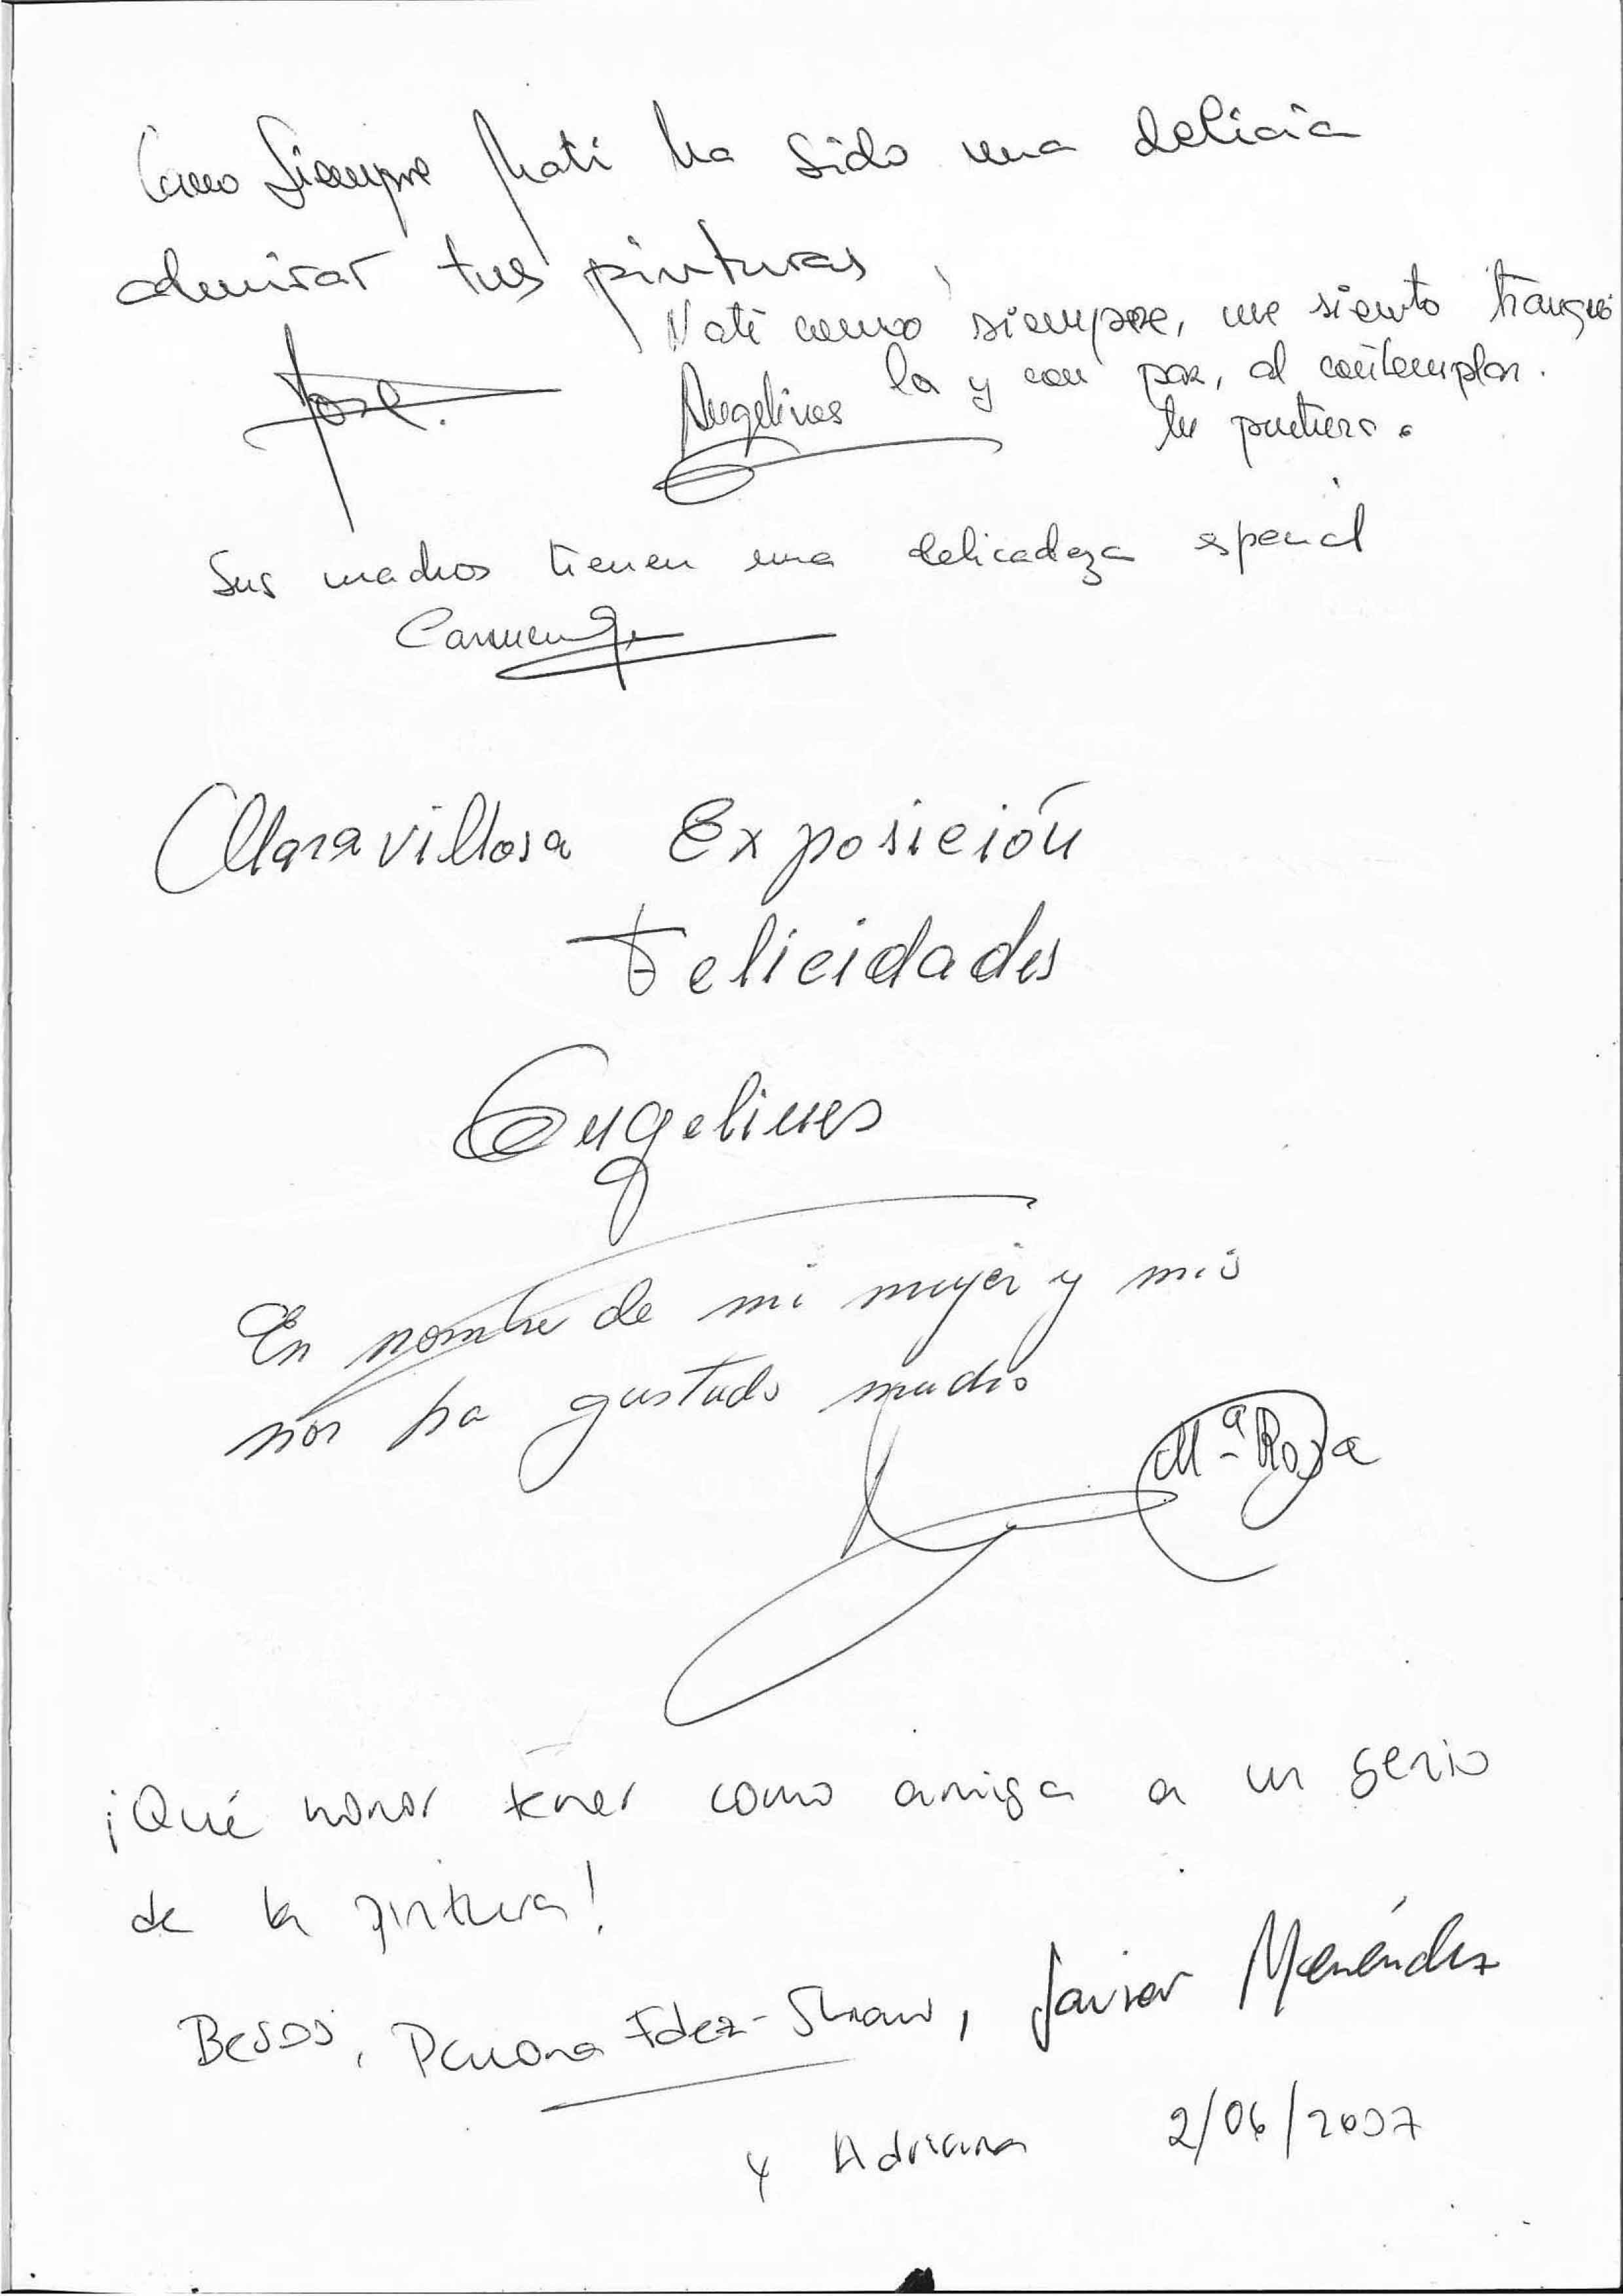 Como Siempre Nati ha sido una delicia
admirar tus pinturas,
José.
Nati como siempre, me siento tranqui
la y con paz, al contemplar.
tu pintura.
Angelines
Sus cuadros tienen una delicadeza especial
Carmen
Maravillosa Exposición
Felicidades
Angelines
En nombre de mi mujer y mis
nos ha gustado mucho
Mª Rosa
¡Qué honor tener como amiga a un genio
de la pintura!
Besos, Fdez-Shaw, Javier Menéndez
y Adriana 2/06/2007